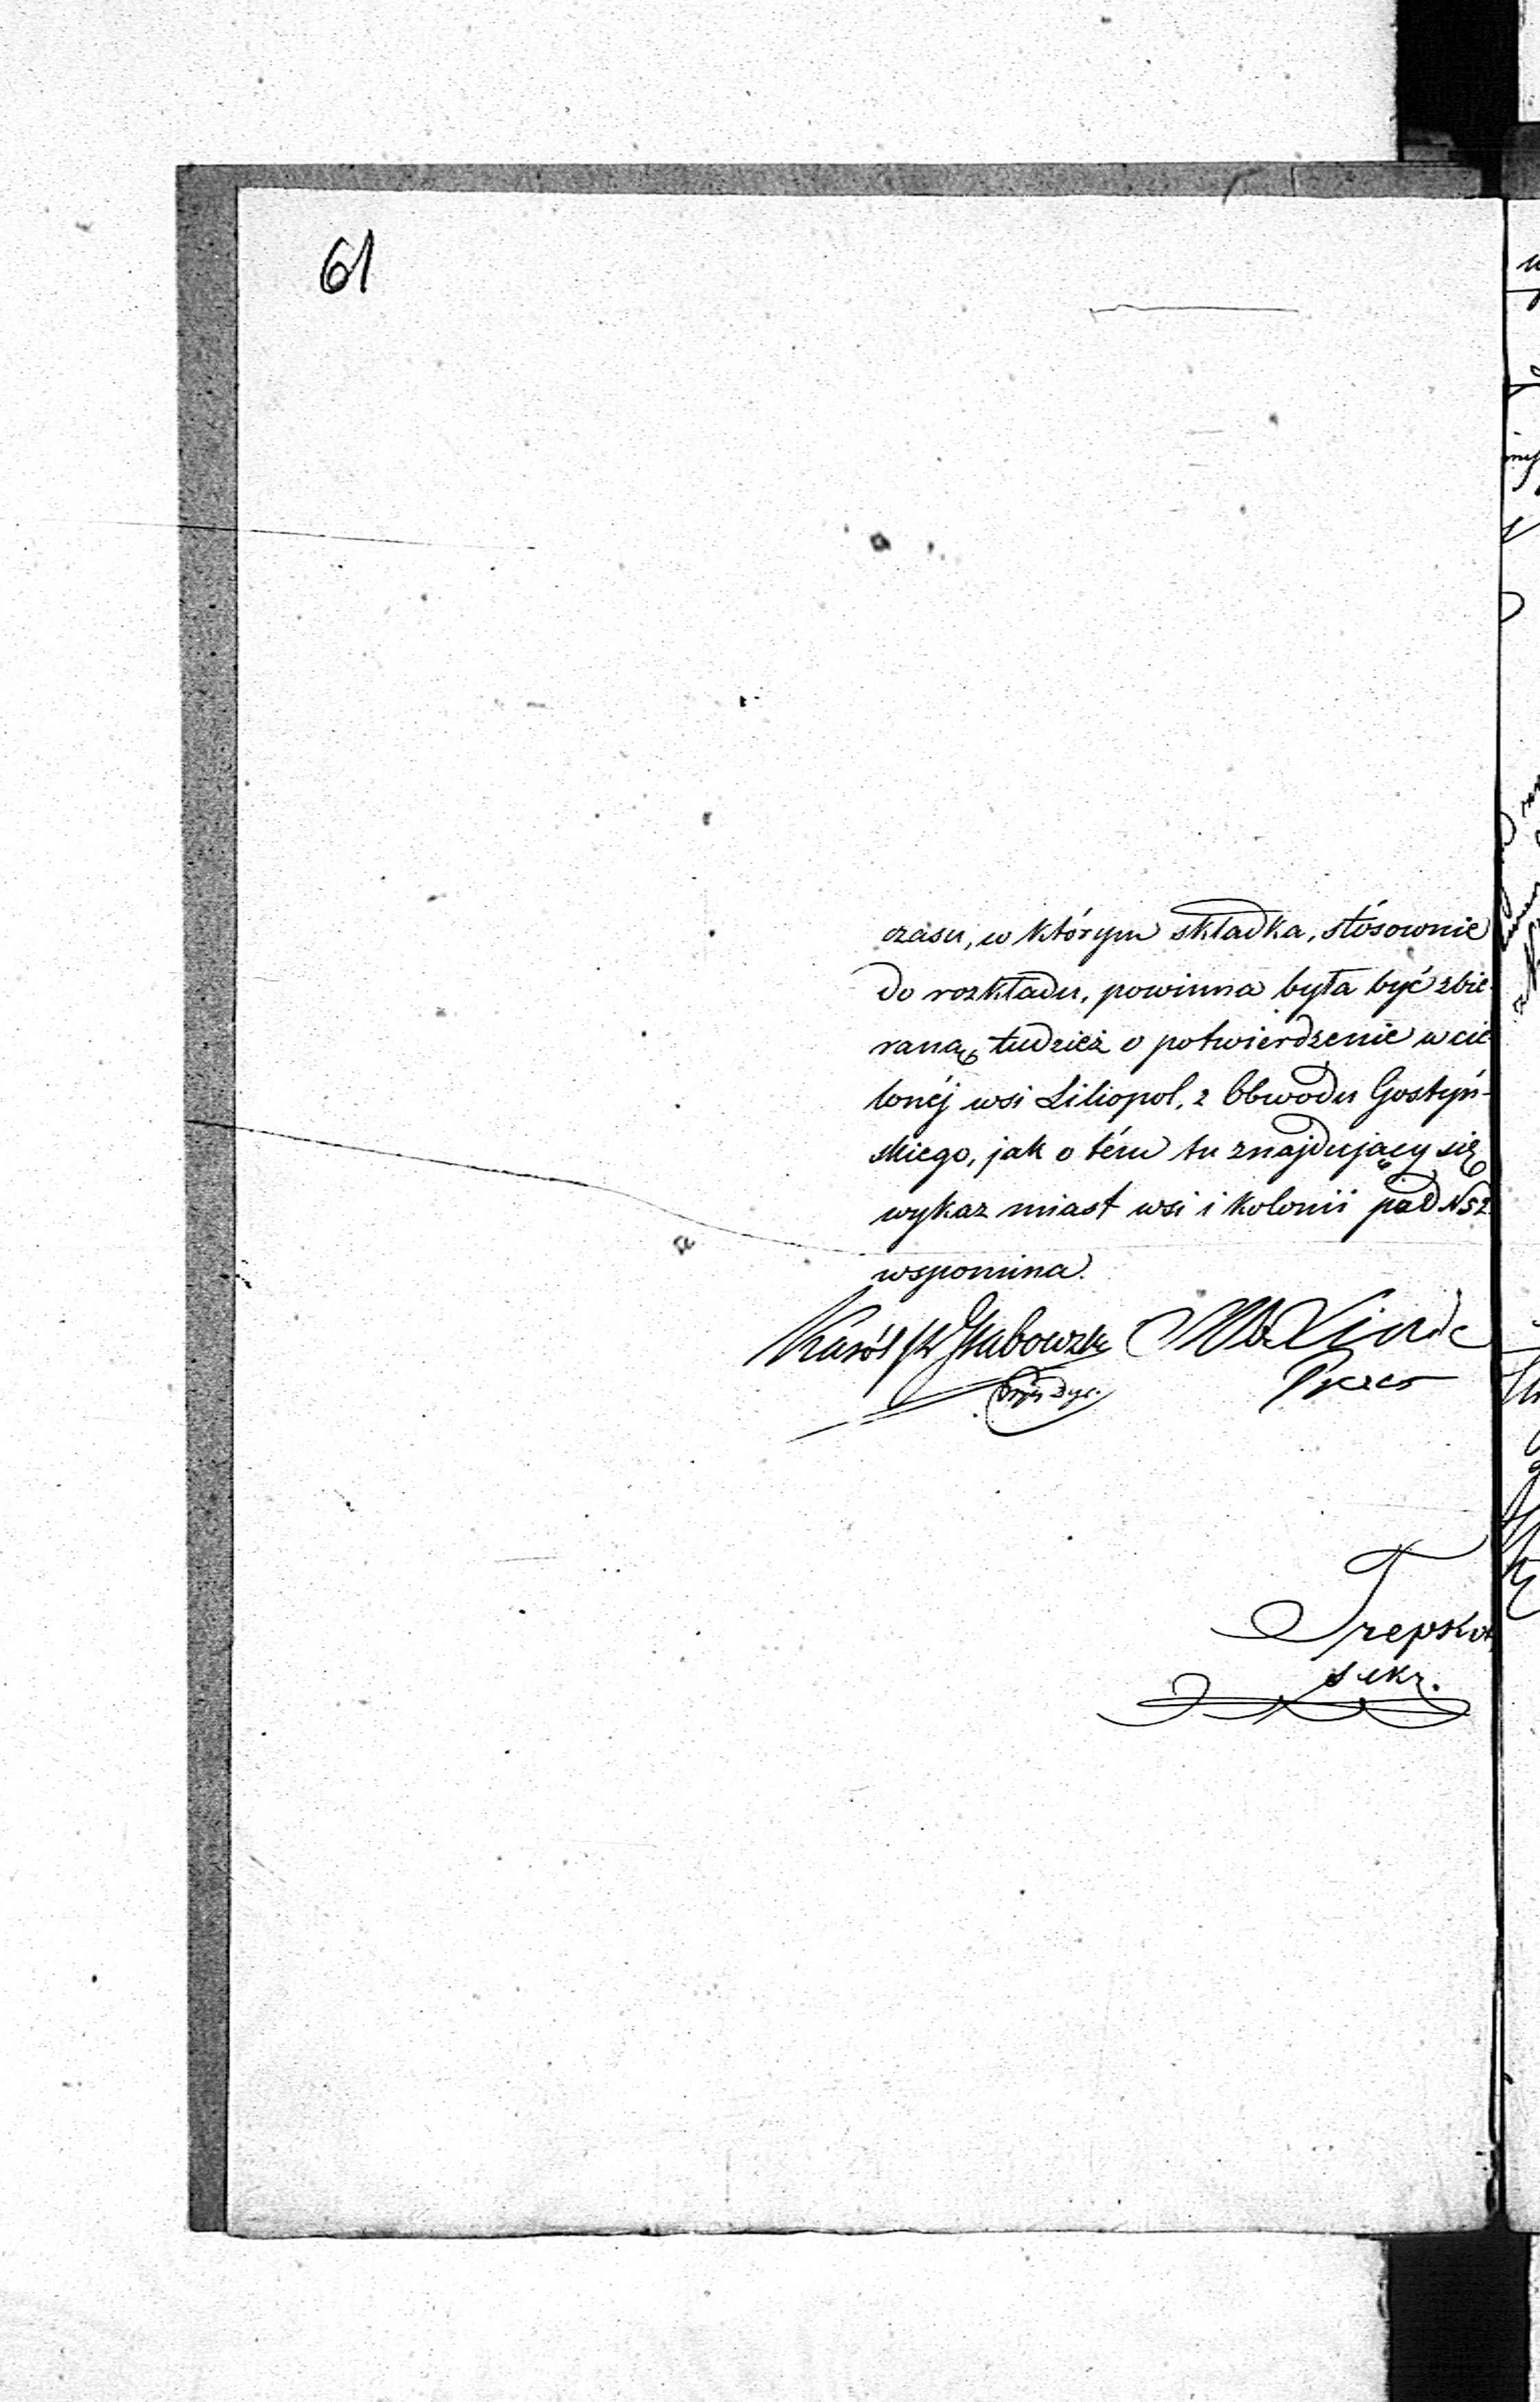 61
czasu, w którym składka, stósownie
do rozkładu, powinna była być zbie-
raną, tudzież o potwierdzenie wcie-
lonéj wsi Liliopol, z Obwodu Gostyń-
skiego, jak o tém tu znajdujący się
wykaz miast wsi i kolonii pod N 52
wspomina.
Karól Hr Grabowski
Prezes
Trepka
Sekr.